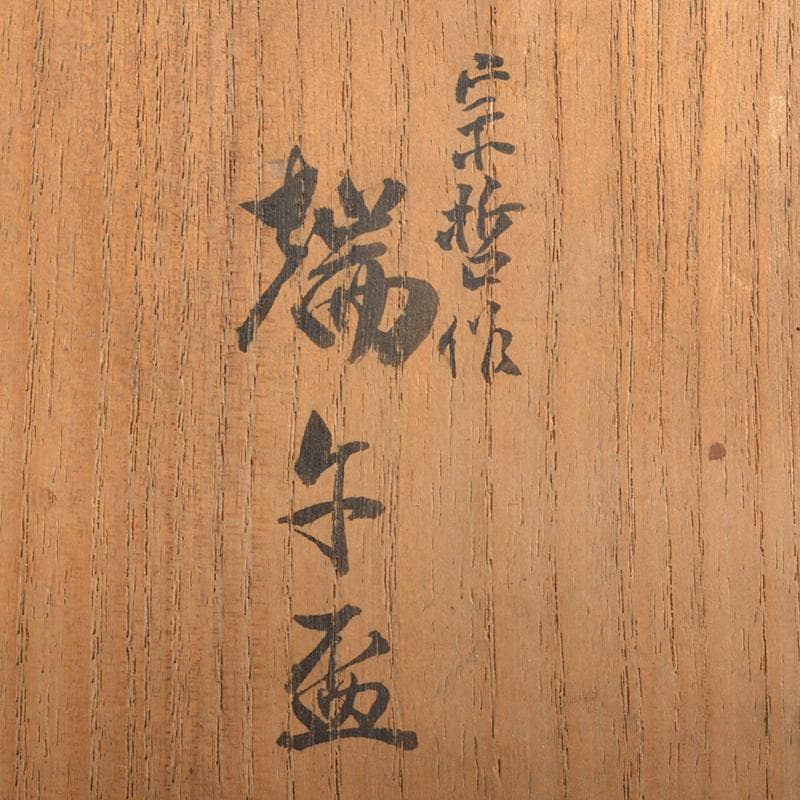 宗哲作
端午盃